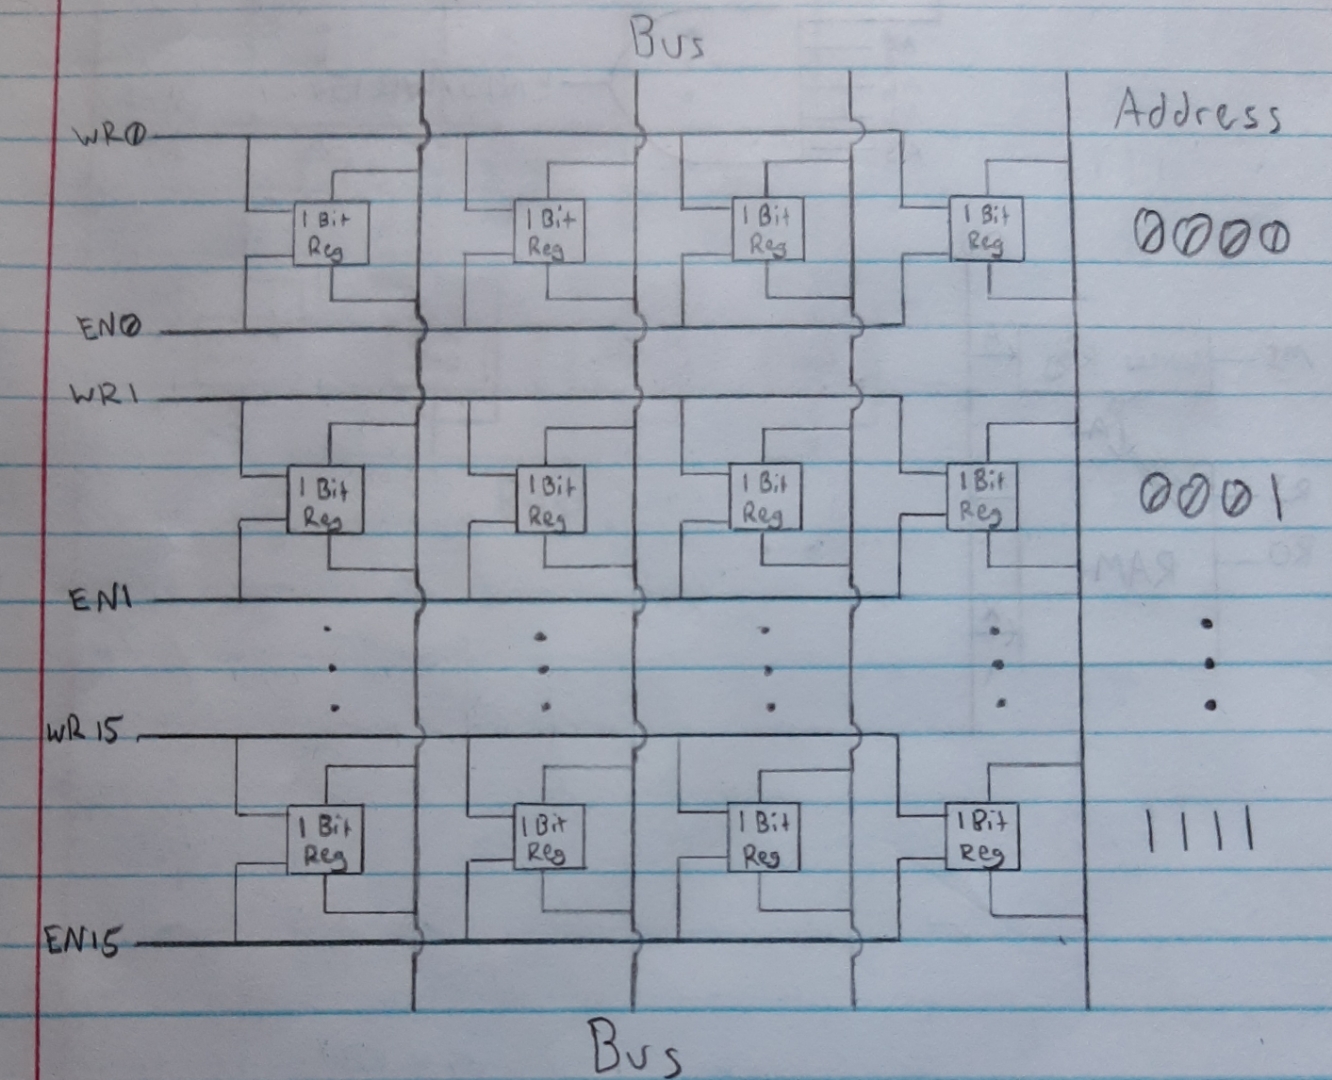 Bus
Address
WR0
1 Bit Reg 1 Bit Reg 1 Bit Reg 1 Bit Reg 0000
EN0
WR1
1 Bit Reg 1 Bit Reg 1 Bit Reg 1 Bit Reg 0001
EN1
WR15
1 Bit Reg 1 Bit Reg 1 Bit Reg 1 Bit Reg 1111
EN15
Bus